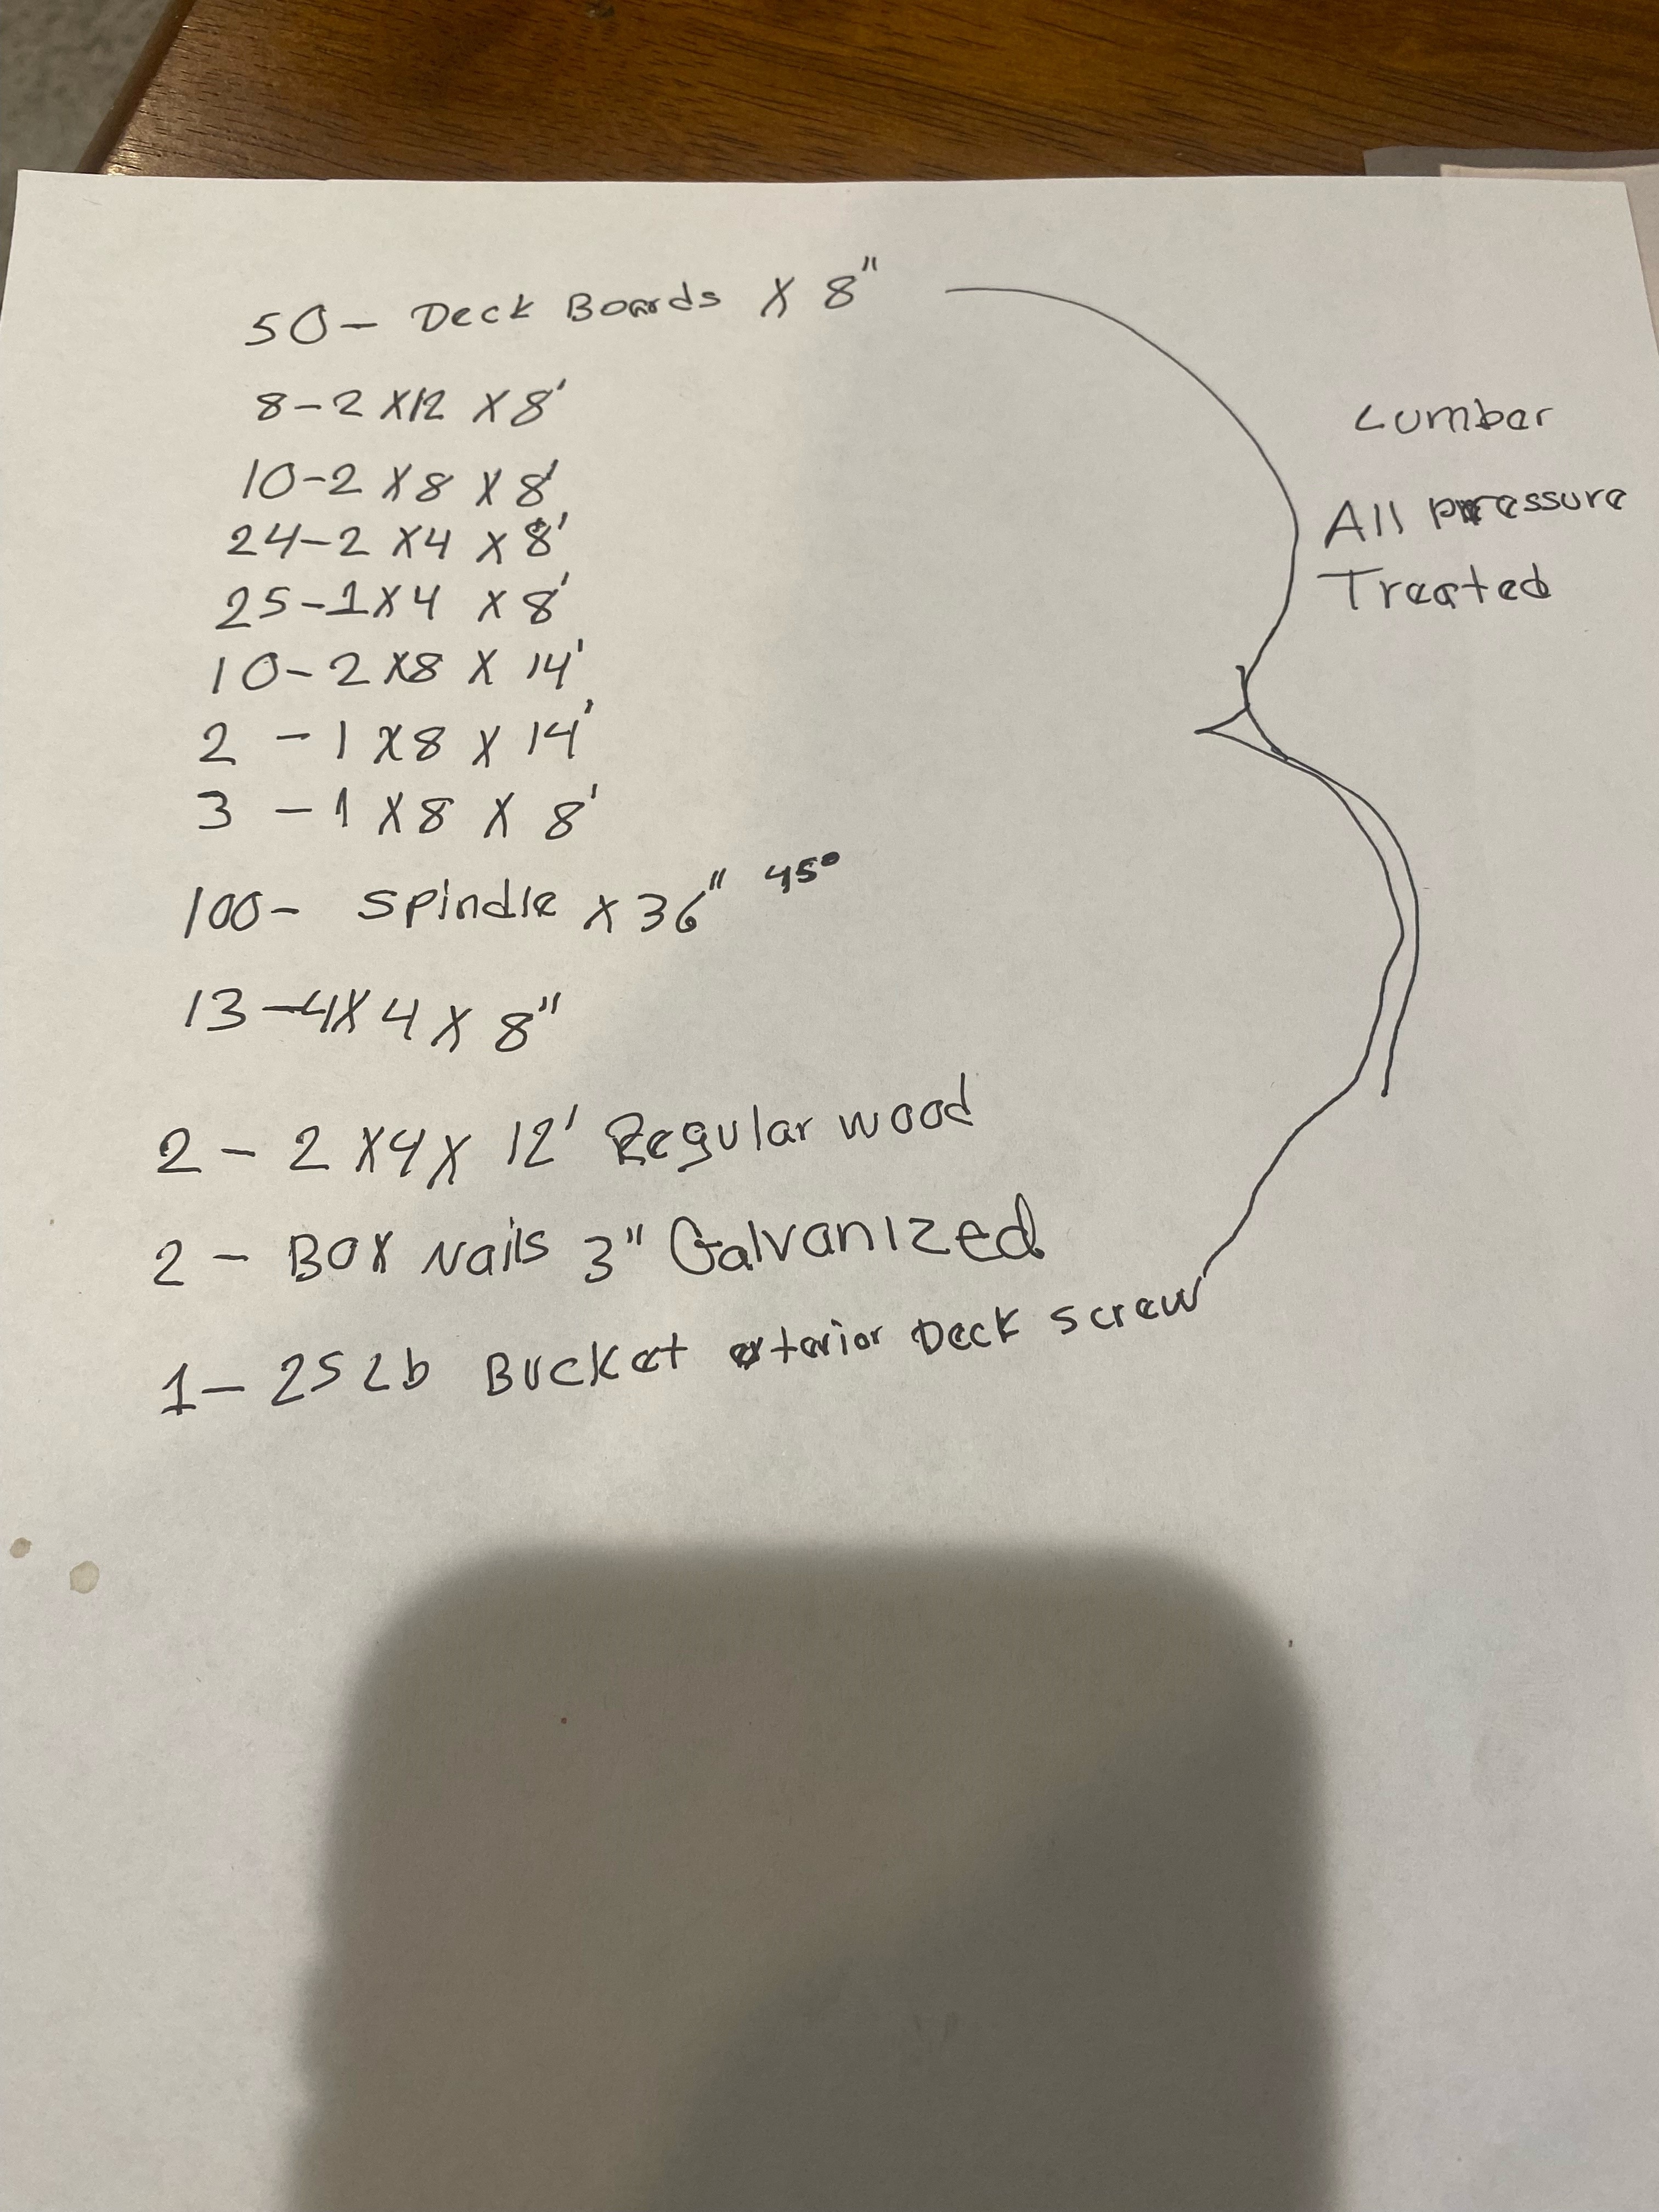 50- Deck Boards X 8"
8-2 X12 X8'
10-2 X8 X8'
24-2 X4 X8'
25-1X4 X8'
10-2 X8 X 14'
2 -1 X8 X 14'
3 -1 X8 X 8'
100- Spindle X 36" 45°
13-4X4 X 8"
2 - 2 X4X 12' Regular wood
2 - BOX Nails 3" Galvanized
1- 25 Lb Bucket exterior Deck screw
Lumber
All pressure
Treated